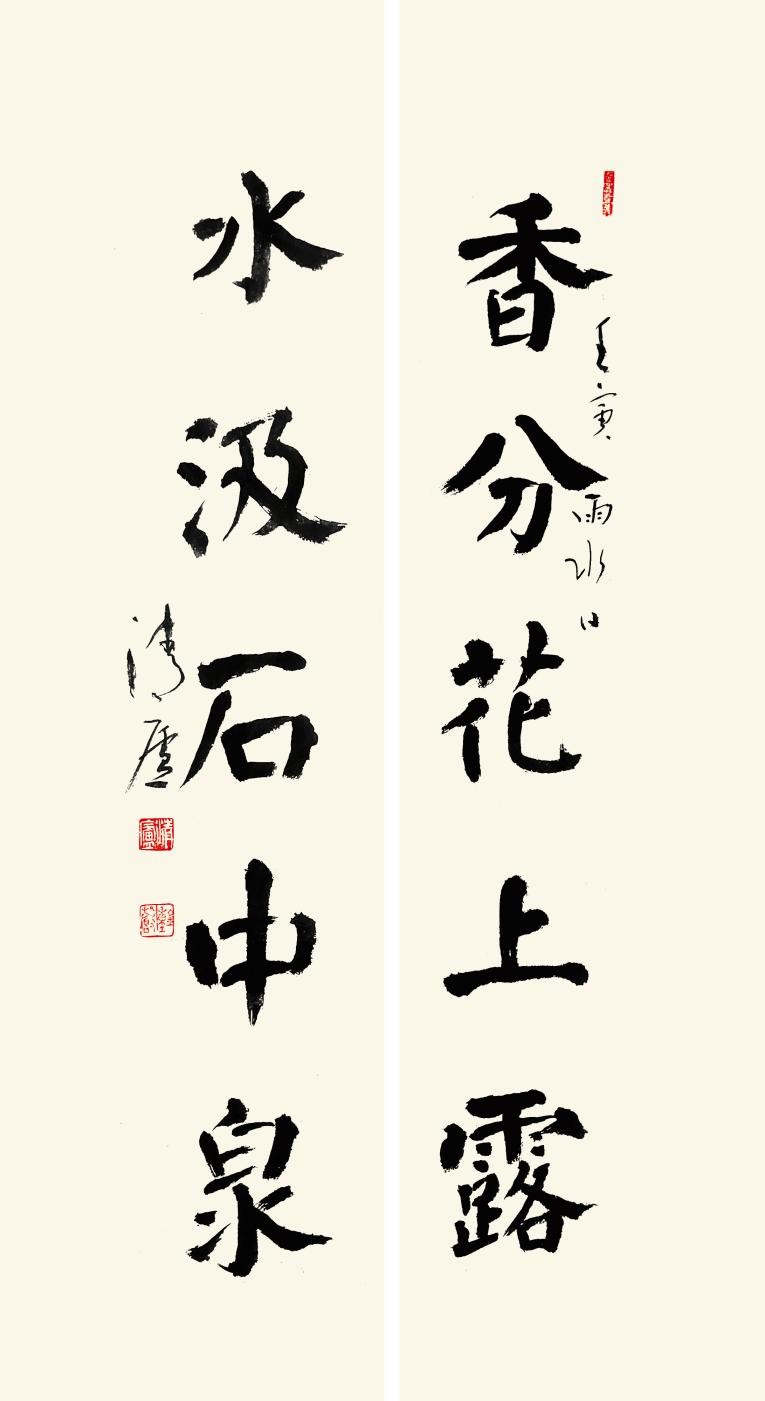 香分花上露
壬寅雨水日
水汲石中泉
清廬
清廬